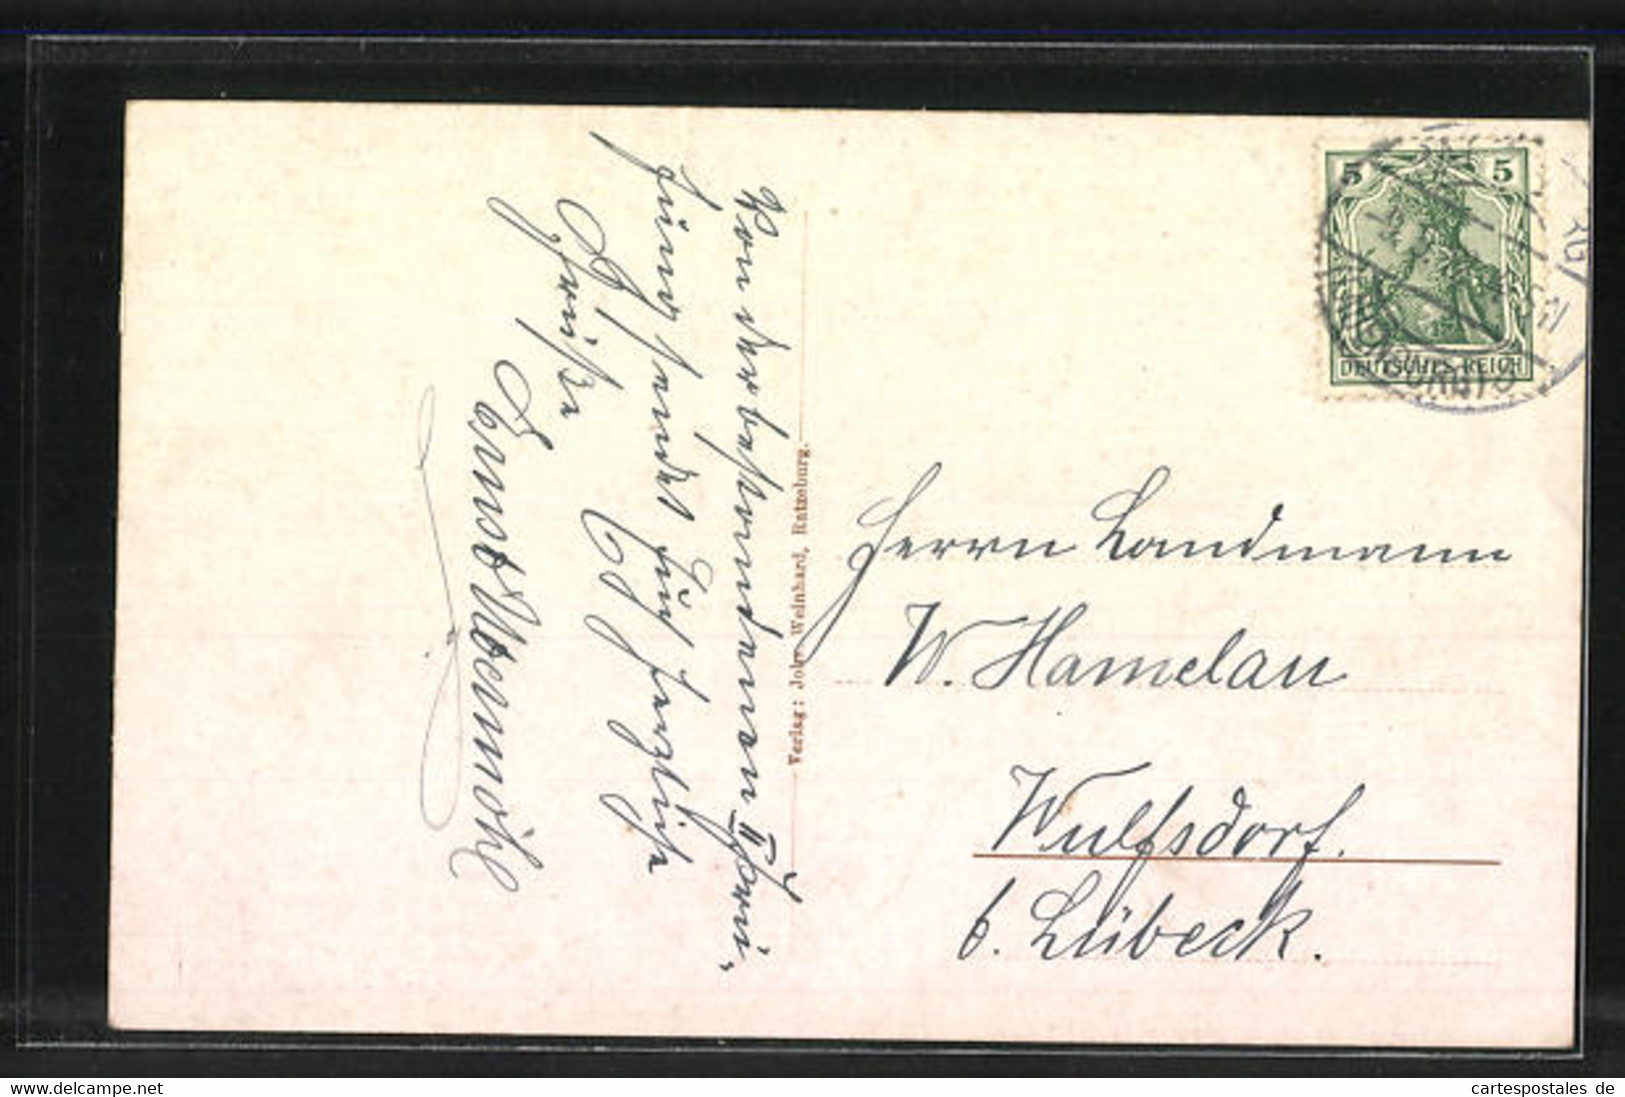 Von der bestandenen
sendet Euch herzliche
Grüße
Ernst
Verlag: Johs. Weinhard, Ratzeburg.
5 5
DEUTSCHES REICH
Herrn Landmann
W. Hamelau
Wulfsdorf.
b. Lübeck.
delcampe.net
cartespostales de